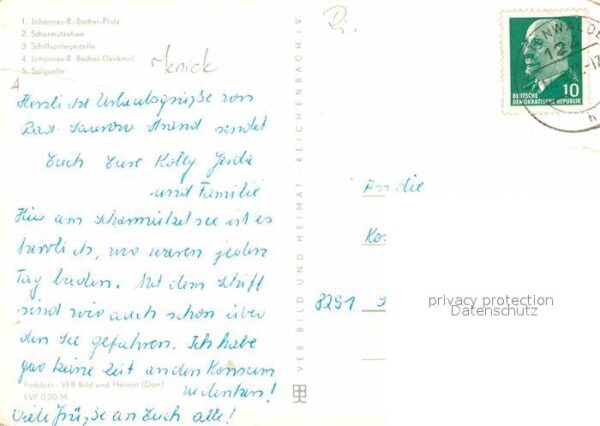 1. Johannes-R.-Becher-Platz
2. Scharmützelsee
3. Schiffsanlegestelle
4. Johannes-R.-Becher-Denkmal
5. Solquelle
Knick
Herzliche Urlaubsgrüße von
Bad-Saarow Strand sendet
Euch Eure Kolln Gerda
und Familie
Hier am Scharmützelsee ist es
herrlich, wir waren jeden
Tag baden. Mit dem Schiff
sind wir auch schon über
den See gefahren. Ich habe
gar keine Zeit an den Konsum
zu denken!
Farbfoto: VEB Bild und Heimat (Darr)
Viele Grüße an Euch alle!
VEB BILD UND HEIMAT · REICHENBACH I. V
10
DEUTSCHE
DEMOKRATISCHE REPUBLIK
An die
8291
privacy protection
Datenschutz